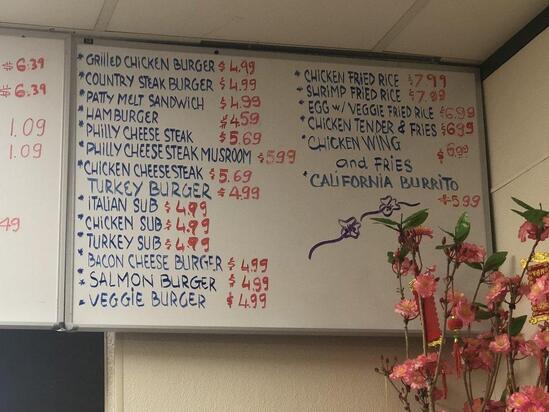 $6.39
$6.39
1.09
1.09
49
* GRILLED CHICKEN BURGER $4.99
* COUNTRY STEAK BURGER $4.99
* PATTY MELT SANDWICH $4.99
* HAMBURGER $4.59
* PHILLY CHEESE STEAK $5.69
* PHILLY CHEESE STEAK MUSROOM $5.99
* CHICKEN CHEESE STEAK $5.69
TURKEY BURGER $4.99
* ITALIAN SUB $4.99
* CHICKEN SUB $4.99
* TURKEY SUB $4.99
* BACON CHEESE BURGER $4.99
* SALMON BURGER $4.99
* VEGGIE BURGER $4.99
* CHICKEN FRIED RICE $7.99
* SHRIMP FRIED RICE $7.89
* EGG w/ VEGGIE FRIED RICE $6.99
* CHICKEN TENDER & FRIES $6.99
* CHICKEN WING $6.99
and FRIES
* CALIFORNIA BURRITO
$5.99